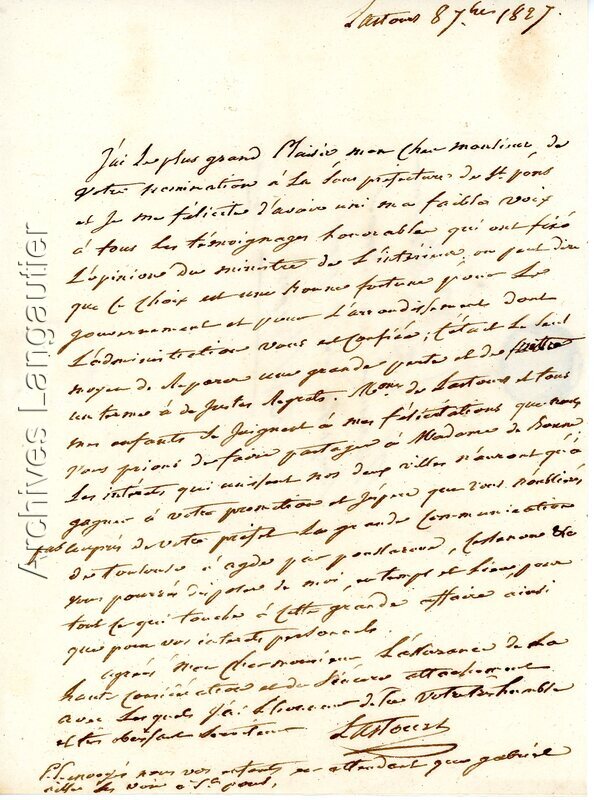 Lastours 8 7bre 1827.
J'ai le plus grand Plaisir mon cher monsieur, de
votre nomination à la sous préfecture de St. pons
et je me félicite d'avoir uni ma faible voix
à tous les témoignages honorables qui ont fixé
L'opinion du ministre de L'intérieur on peut dire
que ce choix est une bonne fortune pour Le
gouvernement et pour L'arrondissement dont
L'administration vous est confiée; c'était Le seul
moyen de réparer une grande perte et de mettre
un terme à de justes Regrets. Mme de Lastours et tous
mes enfants se joignent à mes félicitations que nous
vous prions de faire partager à Madame de Bonne
Les intérêts qui unissent nos deux villes n'auront qu'à
gagner à votre promotion et j'espère que vous n'oublierés
pas auprès de votre préfet La grande Communication
de Toulouse à agde par , Castres &a
vous pourrés disposer de moi, en temps et Lieu, pour
tout ce qui touche à cette grande affaire ainsi
que pour vos intérêts personnels.
agréés mon cher monsieur L'assurance de La
haute Considération et du sincère attachement
avec Lesquels j'ai L'honneur d'être votre très humble
et très obéissant serviteur Lastours
P.S. envoyés nous vos enfants en attendant que gabriel
aille les voir à St. pons,
Archives Langautier